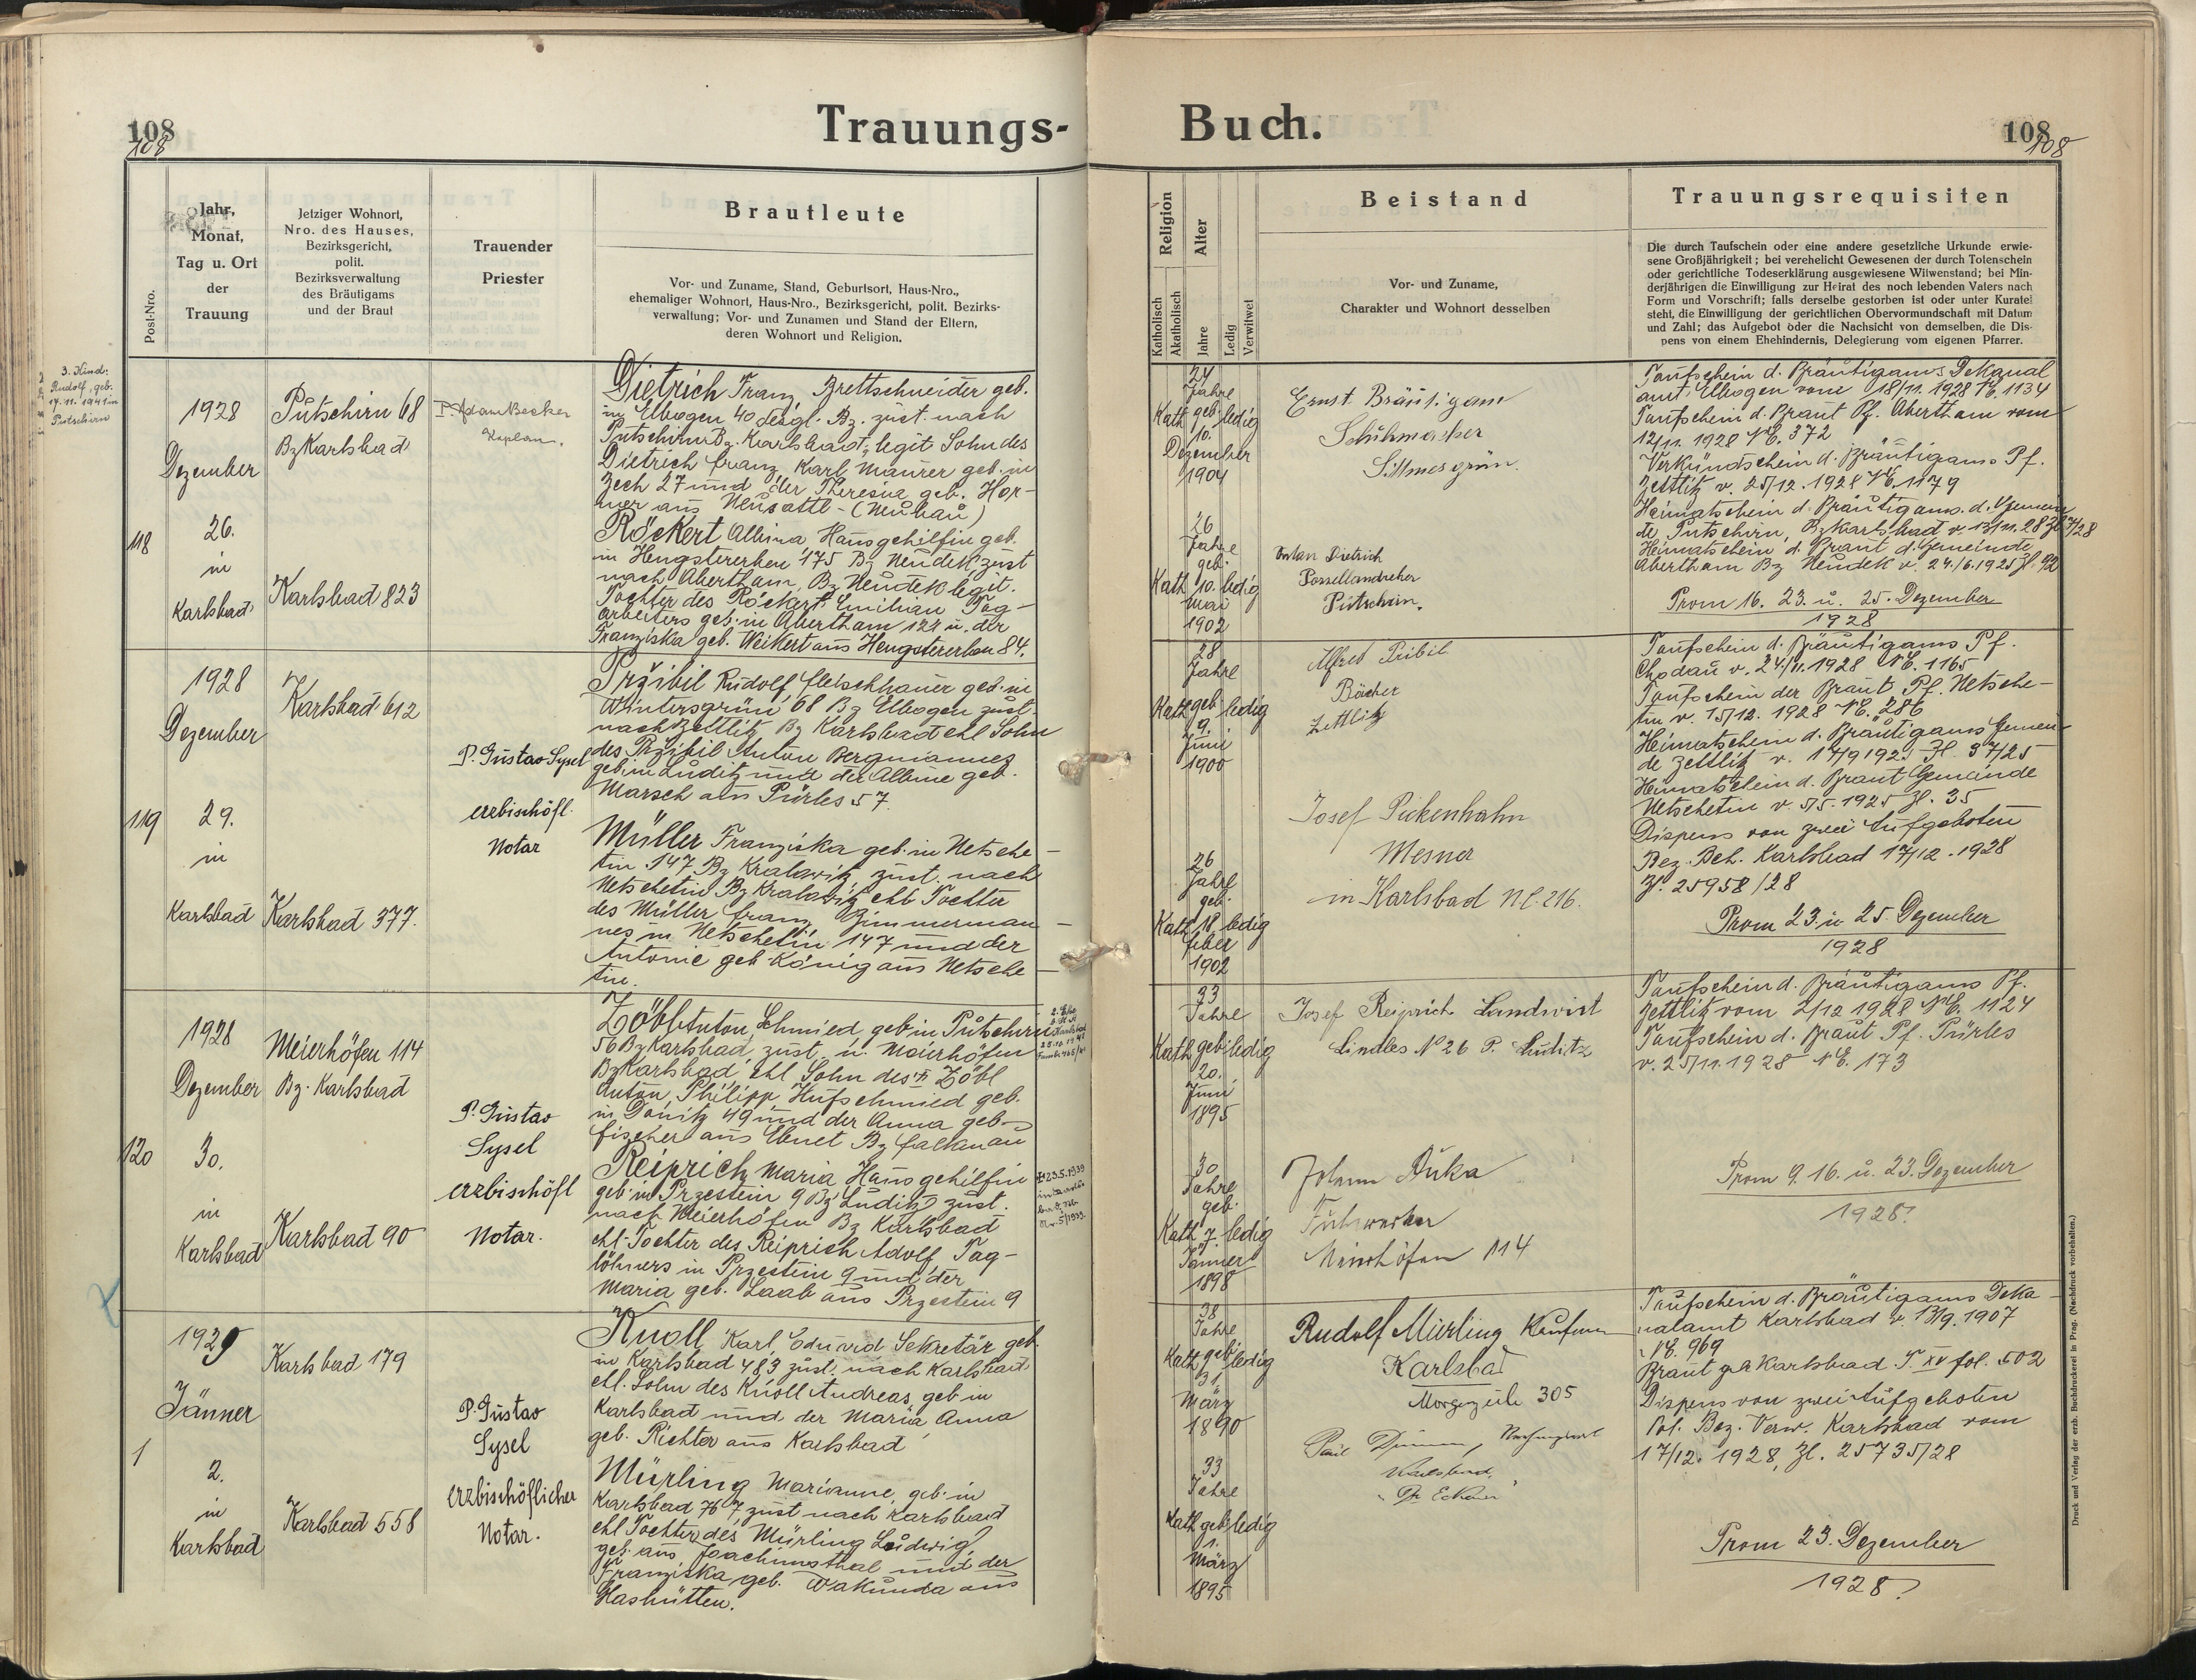 108
108
Trauungs-
Post-Nro.
Jahr,
Monat,
Tag u. Ort
der
Trauung
Jetziger Wohnort,
Nro. des Hauses,
Bezirksgericht,
polit.
Bezirksverwaltung
des Bräutigams
und der Braut
Trauender
Priester
Brautleute
Vor- und Zuname, Stand, Geburtsort, Haus-Nro.,
ehemaliger Wohnort, Haus-Nro., Bezirksgericht, polit. Bezirks-
verwaltung; Vor- und Zunamen und Stand der Eltern,
deren Wohnort und Religion.
3. Kind:
Rudolf, geb.
17.11.1941 in
Putschirn
118
1928
Dezember
26.
in
Karlsbad
Putschirn 68
Bz Karlsbad
Karlsbad 823
P. Adam Becker
Kaplan.
Dietrich Franz, Brettschneider geb.
in Elbogen 40 desgl. Bz. zust. nach
Putschirn Bz. Karlsbad, legit Sohn des
Dietrich Franz Karl Maurer geb. in
Zech 27 und der Theresia geb. Hor-
ner aus Neusattl - (Neuhau)
Röckert Albina Hausgehilfin geb.
in Hengstererben 175 Bz Neudek zust
nach Abertham, Bz Neudek legit.
Tochter des Röckert Emilian Tag-
arbeiters geb. in Abertham 121 u. der
Franziska geb. Weikert aus Hengstererben 84.
119
1928
Dezember
29.
in
Karlsbad
Karlsbad 612
Karlsbad 377.
P. Gustav Sysel
erzbischöfl.
Notar
Pržibil Rudolf, Fleischhauer geb. in
Wintersgrün 68 Bz Elbogen zust.
nach Zettlitz Bz Karlsbad ehl Sohn
des Pržibil Anton Bergmannes
geb. in Luditz und der Albine geb.
Marsch aus Pürles 57.
Müller Franziska geb. in Netsche-
tin 147 Bz Kralowitz zust. nach
Netschetin Bz Kralowitz ehl Tochter
des Müller Franz Zimmerman-
nes in Netschetin 147 und der
Antonie geb. König aus Netsche-
tin.
120
1928
Dezember
30.
in
Karlsbad
Meierhöfen 114
Bz. Karlsbad
Karlsbad 90
P. Gustav
Sysel
erzbischöfl
Notar.
Zöbl Anton, Schmied geb. in Putschirn
56 Bz Karlsbad, zust. n. Meierhöfen
Bz Karlsbad, ehl Sohn des † Zöbl
Anton, Philipp Hufschmied geb.
in Donitz 49 und der Anna geb.
Fischer aus Ebmet Bz Falkenau
Reiprich Maria Hausgehilfin
geb. in Przestein 9 Bz Luditz zust.
nach Meierhöfen Bz Karlsbad
ehl. Tochter des Reiprich Adolf Tag-
löhners in Przestein 9 und der
Maria geb. Laab aus Przestein 9
† 23.5.1939
Nr. 5/1939.
1
1929
Jänner
2.
in
Karlsbad
Karlsbad 179
Karlsbad 558
P. Gustav
Sysel
erzbischöflicher
Notar.
Knoll Karl, Eduard Sekretär geb.
in Karlsbad 483 zust. nach Karlsbad
ehl. Sohn des Knoll Andreas, geb. in
Karlsbad und der Maria Anna
geb. Richter aus Karlsbad
Mürling Marianne, geb. in
Karlsbad 767, zust nach Karlsbad
ehl Tochter des Mürling Ludwig,
geb. aus Joachimsthal und der
Franziska geb. Wakunda aus
Hashütten.
Buch.
108
108
Religion
Katholisch
Akatholisch
Alter
Jahre
Ledig
Verwitwet
Beistand
Vor- und Zuname,
Charakter und Wohnort desselben
Trauungsrequisiten
Die durch Taufschein oder eine andere gesetzliche Urkunde erwie-
sene Großjährigkeit; bei verehelicht Gewesenen der durch Totenschein
oder gerichtliche Todeserklärung ausgewiesene Witwenstand; bei Min-
derjährigen die Einwilligung zur Heirat des noch lebenden Vaters nach
Form und Vorschrift; falls derselbe gestorben ist oder unter Kuratel
steht, die Einwilligung der gerichtlichen Obervormundschaft mit Datum
und Zahl; das Aufgebot oder die Nachsicht von demselben, die Dis-
pens von einem Ehehindernis, Delegierung vom eigenen Pfarrer.
24
Jahre
Kath. geb. ledig
10.
Dezember
1904
26
Jahre
geb.
Kath. 10. ledig
Mai
1902
Ernst Bräutigam
Schuhmacher
Sittmesgrün.
Dietrich
Porzellandreher
Putschirn.
Taufschein d. Bräutigams Dekanal
amt Elbogen vom 18/11. 1928 NE. 1134
Taufschein d. Braut Pf. Abertham vom
12/11. 1928 NE. 372
Verkündschein d. Bräutigams Pf.
Zettlitz v. 25/12. 1928 NE. 1179
Heimatschein d. Bräutigams. d. Gemein
de Putschirn, Bz Karlsbad v. 13/11. 28
Heimatschein d. Braut d. Gemeinde
Abertham Bz Neudek v. 24./6. 1925 Zl. 92
Prom 16. 23. u. 25. Dezember
1928
28
Jahre
Kath geb. ledig
9.
Juni
1900
26
Jahre
geb.
Kath 18. ledig
feber
1902
Alfred Pribil
Bäcker
Zettlitz
Josef Pickenhahn
Mesner
in Karlsbad N.C. 216.
Taufschein d. Bräutigams Pf.
Chodau v. 24./11. 1928 NE. 1165
Taufschein der Braut Pf. Netsche-
tin v. 15/12. 1928 NE. 286
Heimatschein d. Bräutigams Gemein-
de Zettlitz v. 17/9 1925 Zl. 37/25
Heimatschein d. Braut Gemeinde
Netschetin v. 5/5. 1925 Zl. 35
Dispens von zwei Aufgeboten
Bez. Beh. Karlsbad 17/12. 1928
Zl. 25958/28
Prom 23. u 25. Dezember
1928
33
Jahre
Kath geb. ledig
20.
Juni
1895
30
Jahre
geb.
Kath 7. ledig
Jänner
1898
Josef Reiprich Landwirt
Lindles N 26 P. Luditz
Johann Duka
Fuhrwerker
Meierhöfen 114
Taufschein d. Bräutigams Pf.
Zettlitz vom 2/12 1928 NE. 1124
Taufschein d. Braut Pf. Pürles
v. 25/11. 1928 NE. 173
Prom 9. 16. u. 23. Dezember
1928.
38
Jahre
Kath geb. ledig
31.
März
1890
33
Jahre
Kath geb. ledig
1.
März
1895
Rudolf Mürling Kaufmann
Karlsbad
305
Karlsbad,
Taufschein d. Bräutigams Deka-
nalamt Karlsbad v. 13/9. 1907
NE. 969
Braut Karlsbad T. XV fol. 502
Dispens von zwei Aufgeboten
Pol. Bez. Verw. Karlsbad vom
17/12. 1928, Zl. 25735/28
Prom 23. Dezember
1928
Druck und Verlag der erzb. Buchdruckerei in Prag. (Nachdruck vorbehalten.)